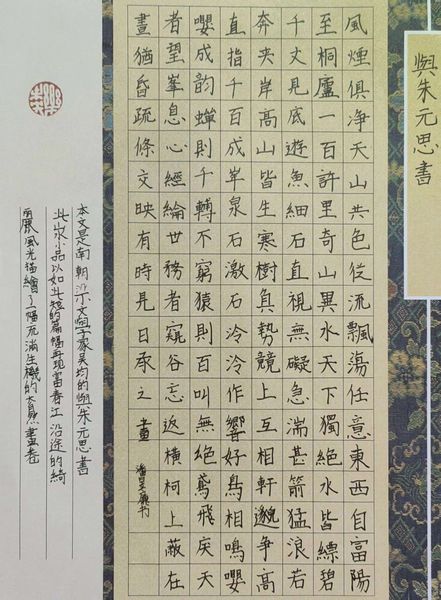 與朱元思書
風煙俱净天山共色從流飄蕩任意東西自富陽
至桐廬一百許里奇山異水天下獨絕水皆縹碧
千丈見底遊魚細石直視無礙急湍甚箭猛浪若
奔夾岸高山皆生寒樹負勢競上互相軒邈爭高
直指千百成峯泉石激石泠泠作響好鳥相鳴嚶
嚶成韵蟬則千轉不窮猿則百叫無絕鳶飛戾天
者望峯息心經綸世務者窺谷忘返橫柯上蔽在
晝猶昏疏條交映有時見日
本文是南朝文學家吳均的與朱元思書
此小品以如此短的篇幅再現富春江沿途的綺
麗風光描繪了一幅充滿生機的大自然畫卷